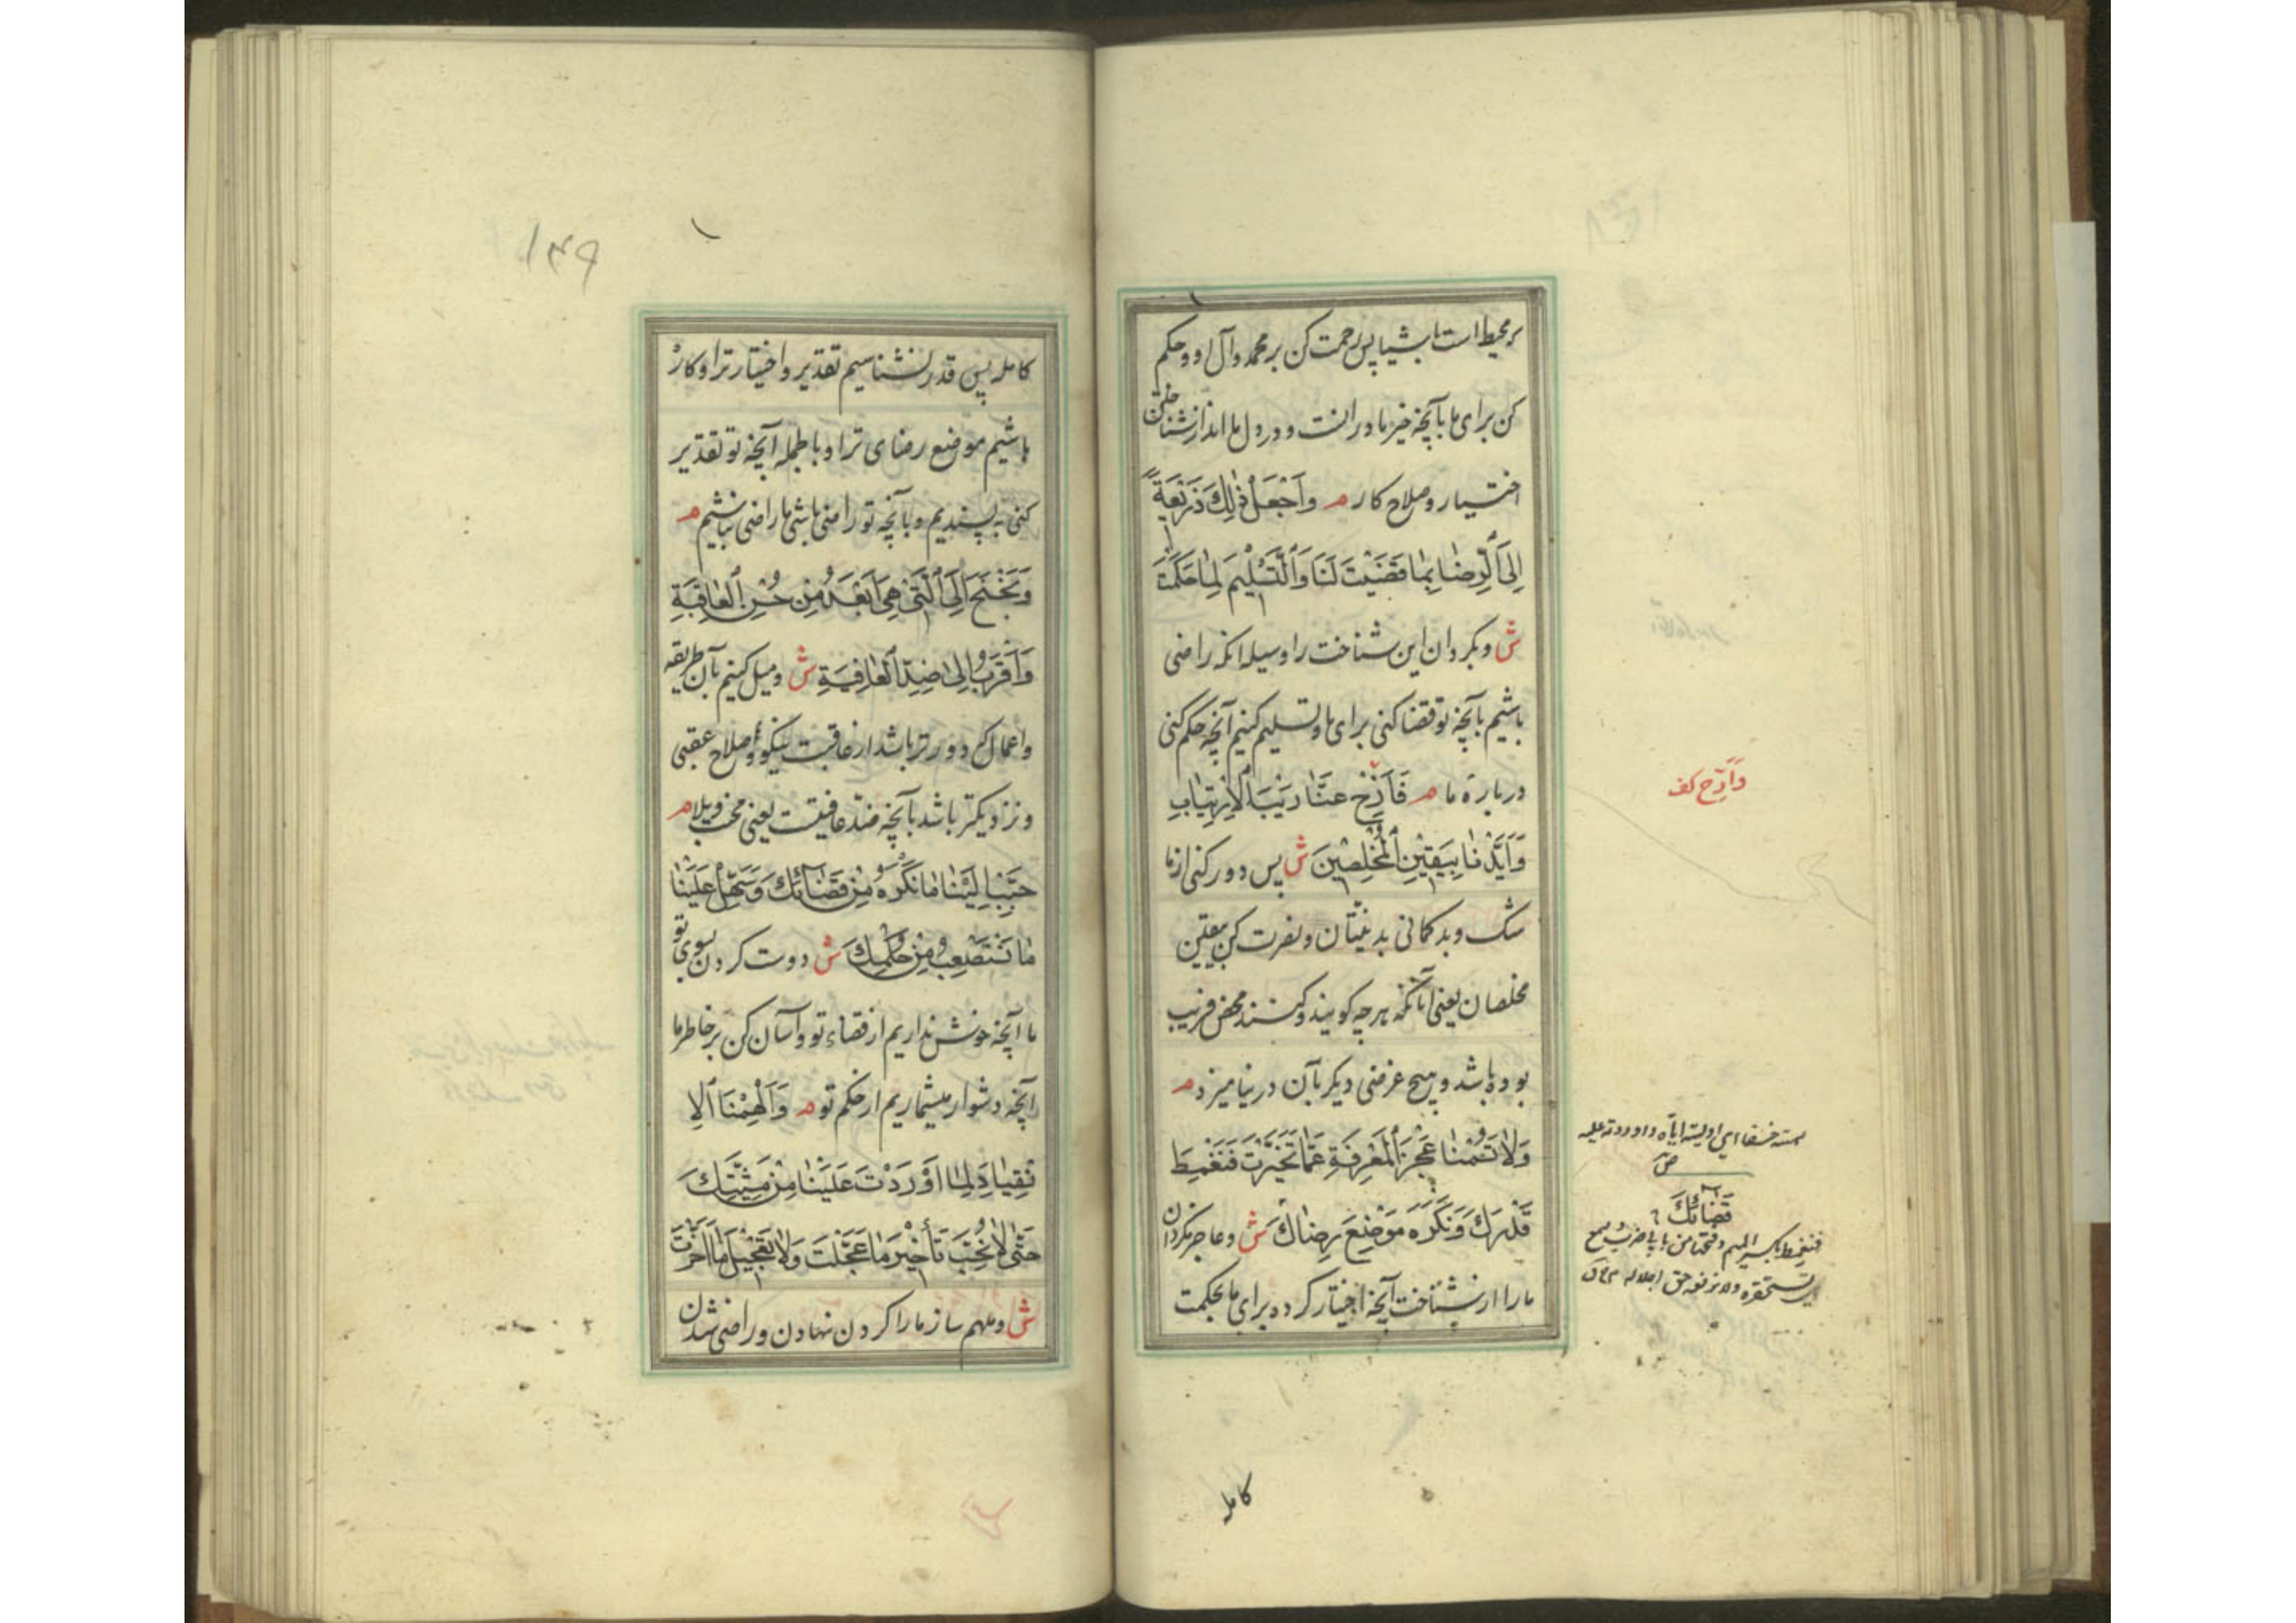 بر محیط است باشیا پس رحمت کن بر محمد و آل او و حکم
کن برای ما بآنچه خیر ما در انست و در دل ما انداز شناختن
اختیار و صلاح کار م وَاجْعَلْ ذٰلِكَ ذَرِيْعَةً
اِلَى الرِّضٰا بِمٰا قَضَيْتَ لَنَا وَالتَّسْلِيْمَ لِمٰا حَكَمْتَ
ش و بکردان این شناخت را وسیله انکه راضی
باشیم بآنچه تو قضا کنی برای ما و تسلیم کنیم آنچه حکم کنی
درباره ما م فَاَزِحْ عَنَّا رَيْبَ الْاِرْتِيٰابِ
وَاَيِّدْنٰا بِيَقِيْنِ الْمُخْلِصِيْنَ ش پس دور کنی از ما
شک و بد کمانی بدنیتان و نصرت کن بیقین
مخلصان یعنی آنانکه هر چه کویند و کنند محض قریب
بوده باشد و هیچ غرضی دیکر بآن در نیامیزد م
وَلٰا تَسُمْنٰا عَجْزَ الْمَعْرِفَةِ عَمّٰا تَخَيَّرْتَ فَنَغْمِطَ
قَدْرَكَ وَنَكْرَهَ مَوْضِعَ رِضٰاكَ ش و عاجز نکردان
ما را از شناخت آنچه اختیار کرده برای ما بحکمت
وَاَزِح کف
قَضٰائِكَ
فنغمط بکسر المیم و فتحها من بابی ضرب و سمع
کامله
۱۴۹
کامله پس قدر نشناسیم تقدیر و اختیار ترا و کاره
باشیم موضع رضای ترا و بالجمله آنچه تو تقدیر
کنی نه پسندیم و بآنچه تو راضی باشی ما راضی نباشیم م
وَنَجْنَحَ اِلَى الَّتِيْ هِيَ اَبْعَدُ مِنْ حُسْنِ الْعٰاقِبَةِ
وَاَقْرَبُ اِلىٰ ضِدِّ الْعٰافِيَةِ ش و میل کنیم بآن طریقه
و اعمال که دورتر باشد از عاقبت نیکو و اصلاح عقبی
و نزدیکتر باشد بآنچه ضد عافیتست یعنی محنت و بلا م
حَبِّبْ اِلَيْنٰا مٰا نَكْرَهُ مِنْ قَضٰائِكَ وَسَهِّلْ عَلَيْنٰا
مٰا نَسْتَصْعِبُ مِنْ حُكْمِكَ ش دوست کردن بسوی تو
ما آنچه خوش نداریم از قضاء تو و آسان کن بر خاطر ما
آنچه دشوار میشماریم از حکم تو م وَاَلْهِمْنَا الْاِ
نْقِيٰادَ لِمٰا اَوْرَدْتَ عَلَيْنٰا مِنْ مَشِيَّتِكَ
حَتّٰى لٰا نُحِبَّ تَأْخِيْرَ مٰا عَجَّلْتَ وَلٰا تَعْجِيْلَ مٰا اَخَّرْتَ
ش و ملهم ساز ما را کردن نهادن و راضی شدن